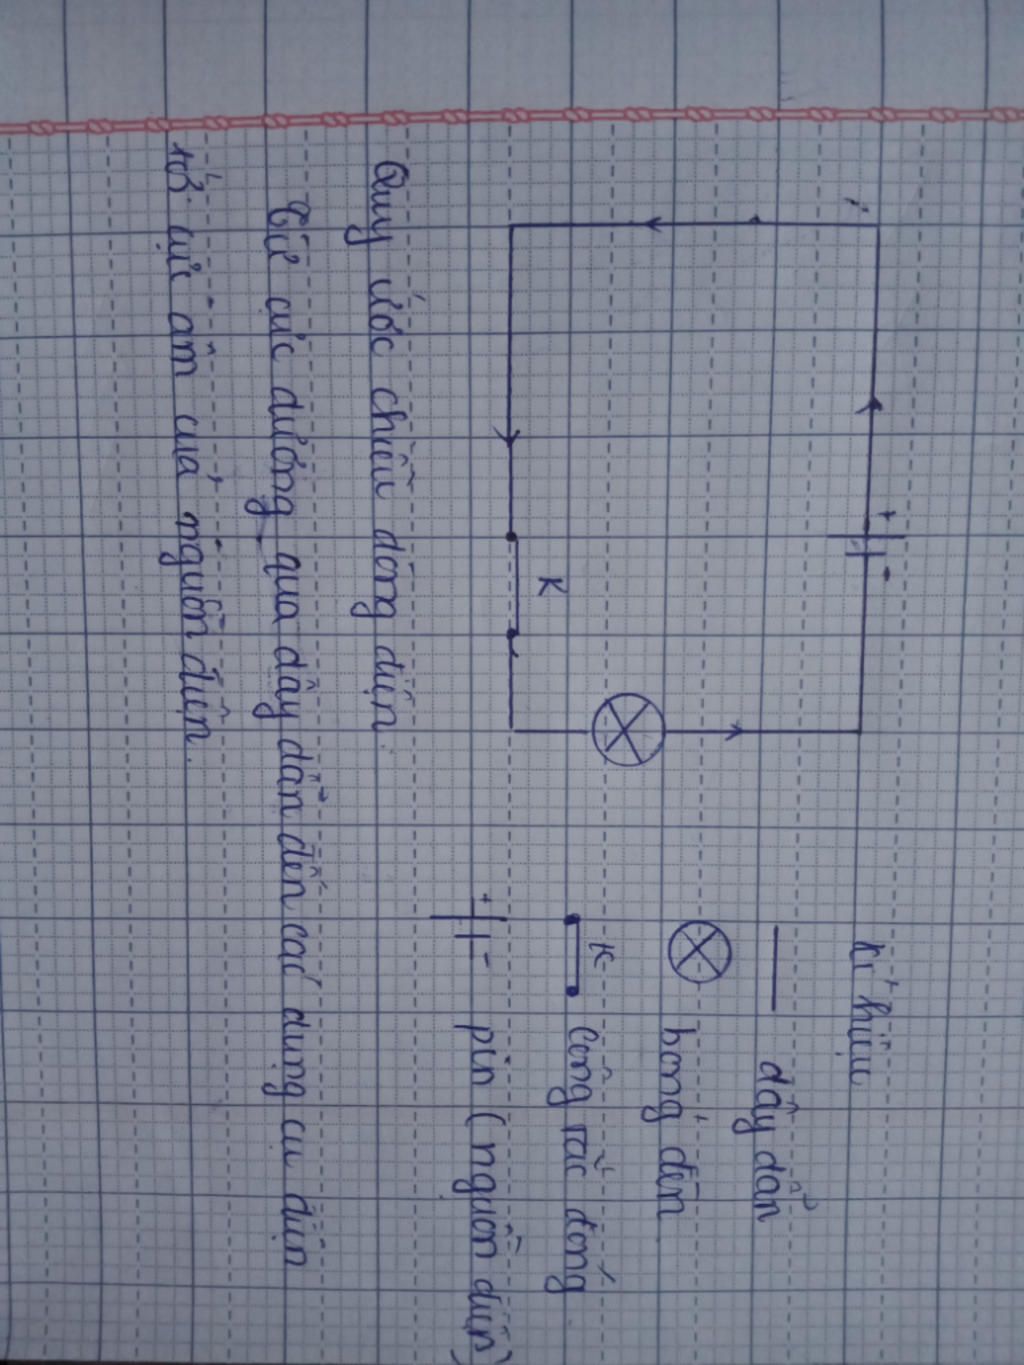 + -
K
Kí hiệu
dây dẫn
bóng đèn
K công tắc đóng
+ - pin (nguồn điện)
Quy ước chiều dòng điện
Từ cực dương qua dây dẫn đến các dụng cụ điện
tới cực âm của nguồn điện.